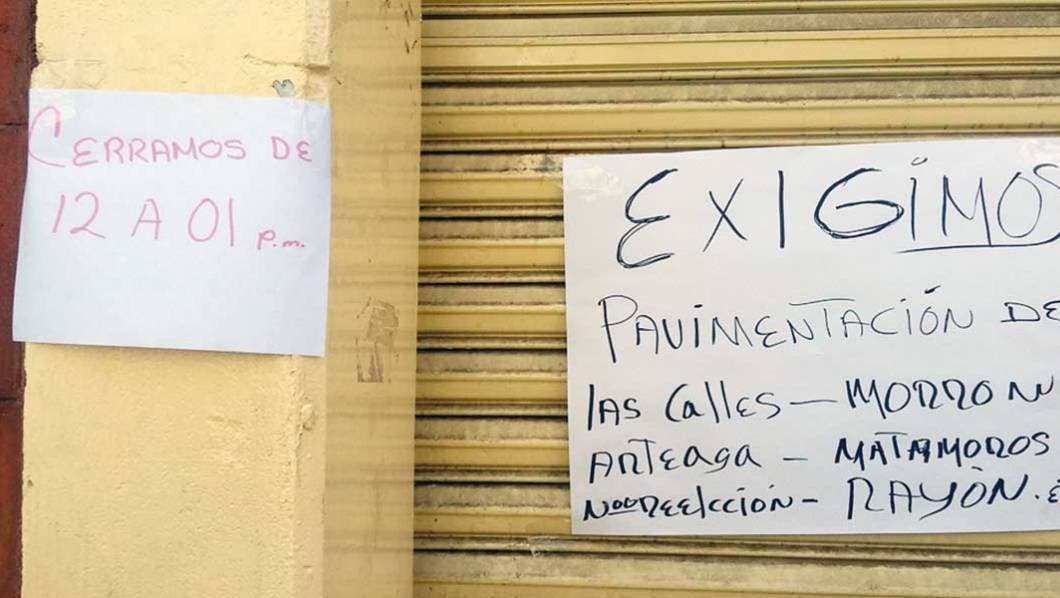 CERRAMOS DE
12 A 01 p.m.
EXIGIMOS
PAVIMENTACIÓN DE
lAS CAlleS — MORRON
ARTEAGA — MATAMOROS
RAYÓN.